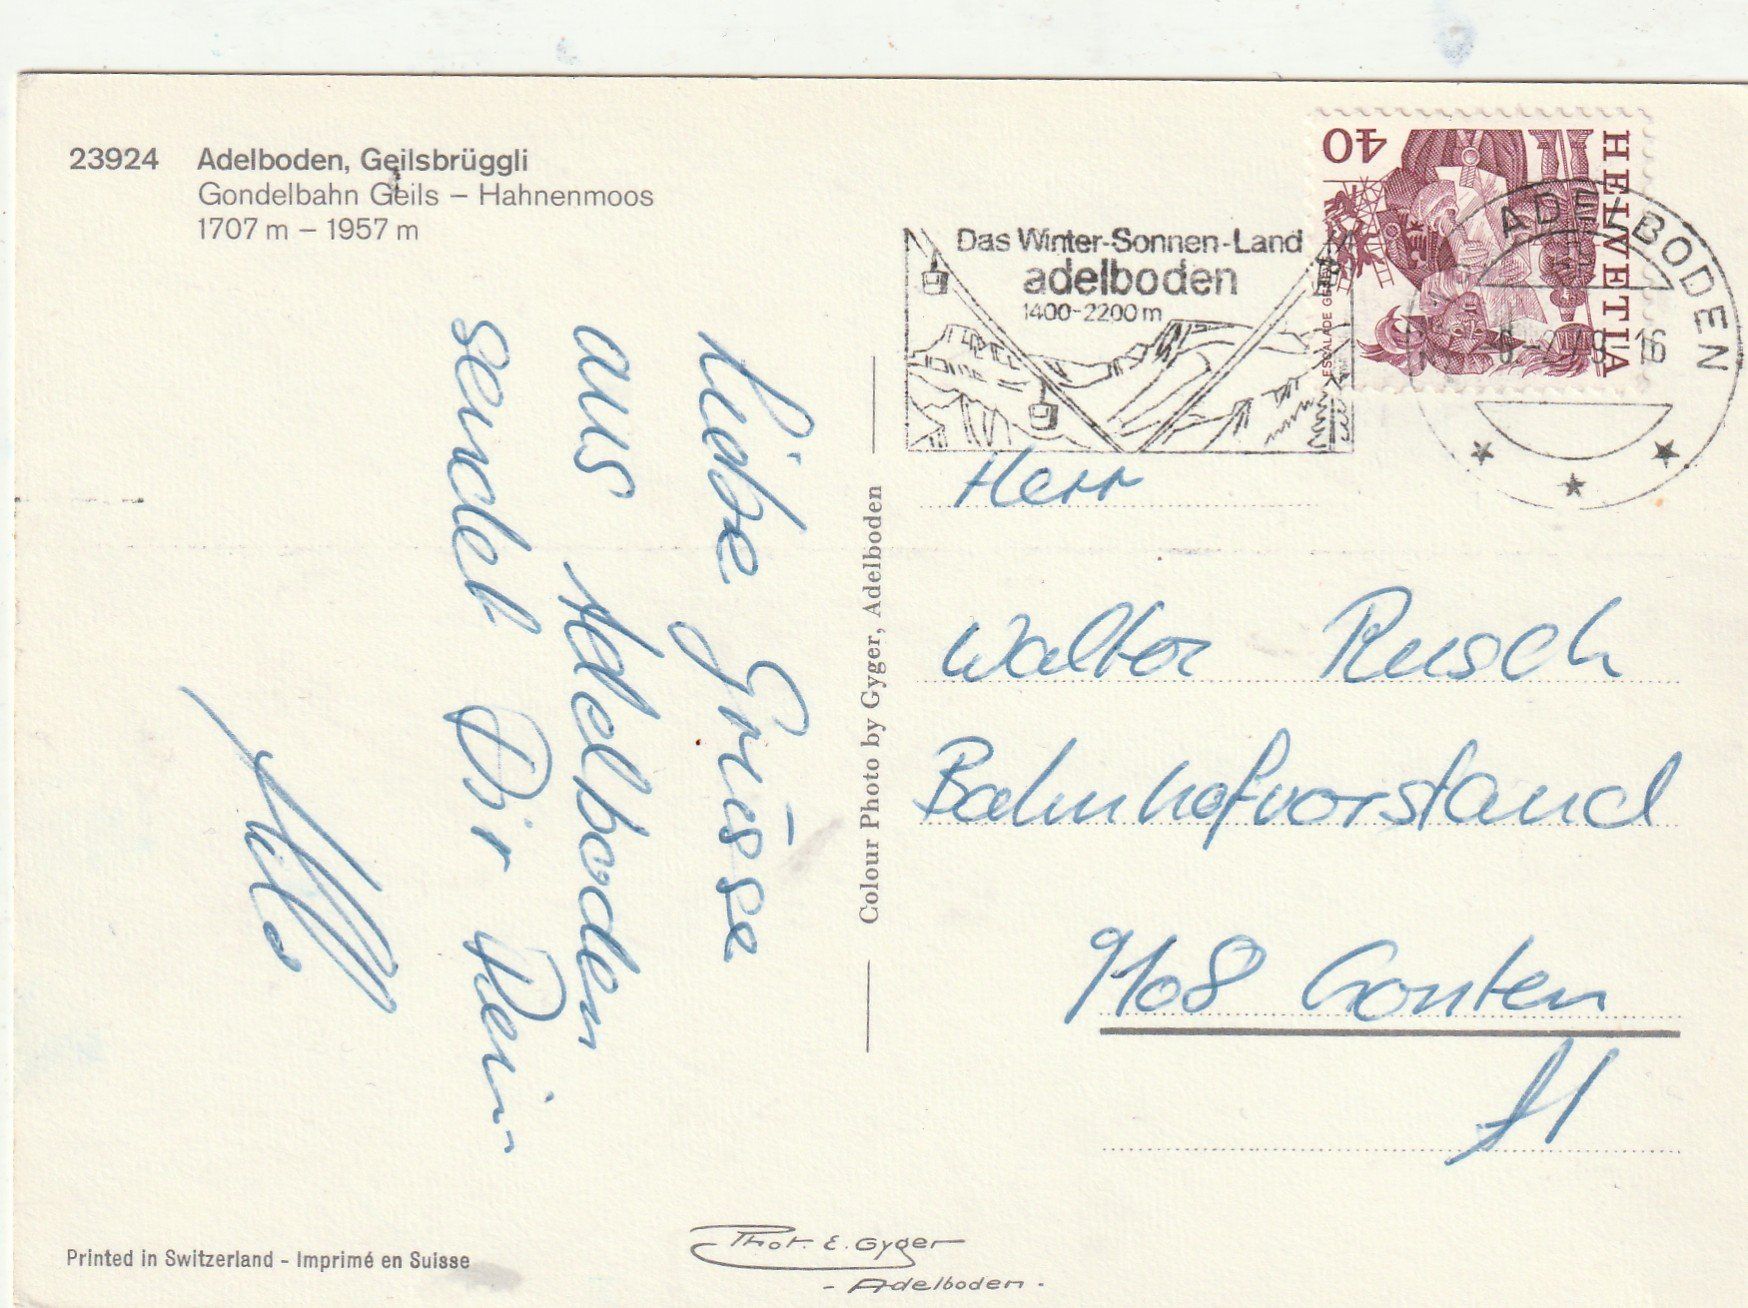 23924 Adelboden, Geilsbrüggli
Gondelbahn Geils – Hahnenmoos
1707 m – 1957 m
Liebe Grüsse
aus Adelboden
sendet Dir Dein
Colour Photo by Gyger, Adelboden
Das Winter-Sonnen-Land
adelboden
1400-2200 m
HELVETIA
40
ESCALADE
ADELBODEN
16
Herr
Walter Rusch
Bahnhofvorstand
9108 Gonten
AI
Printed in Switzerland - Imprimé en Suisse
Phot. E. Gyger
- Adelboden -